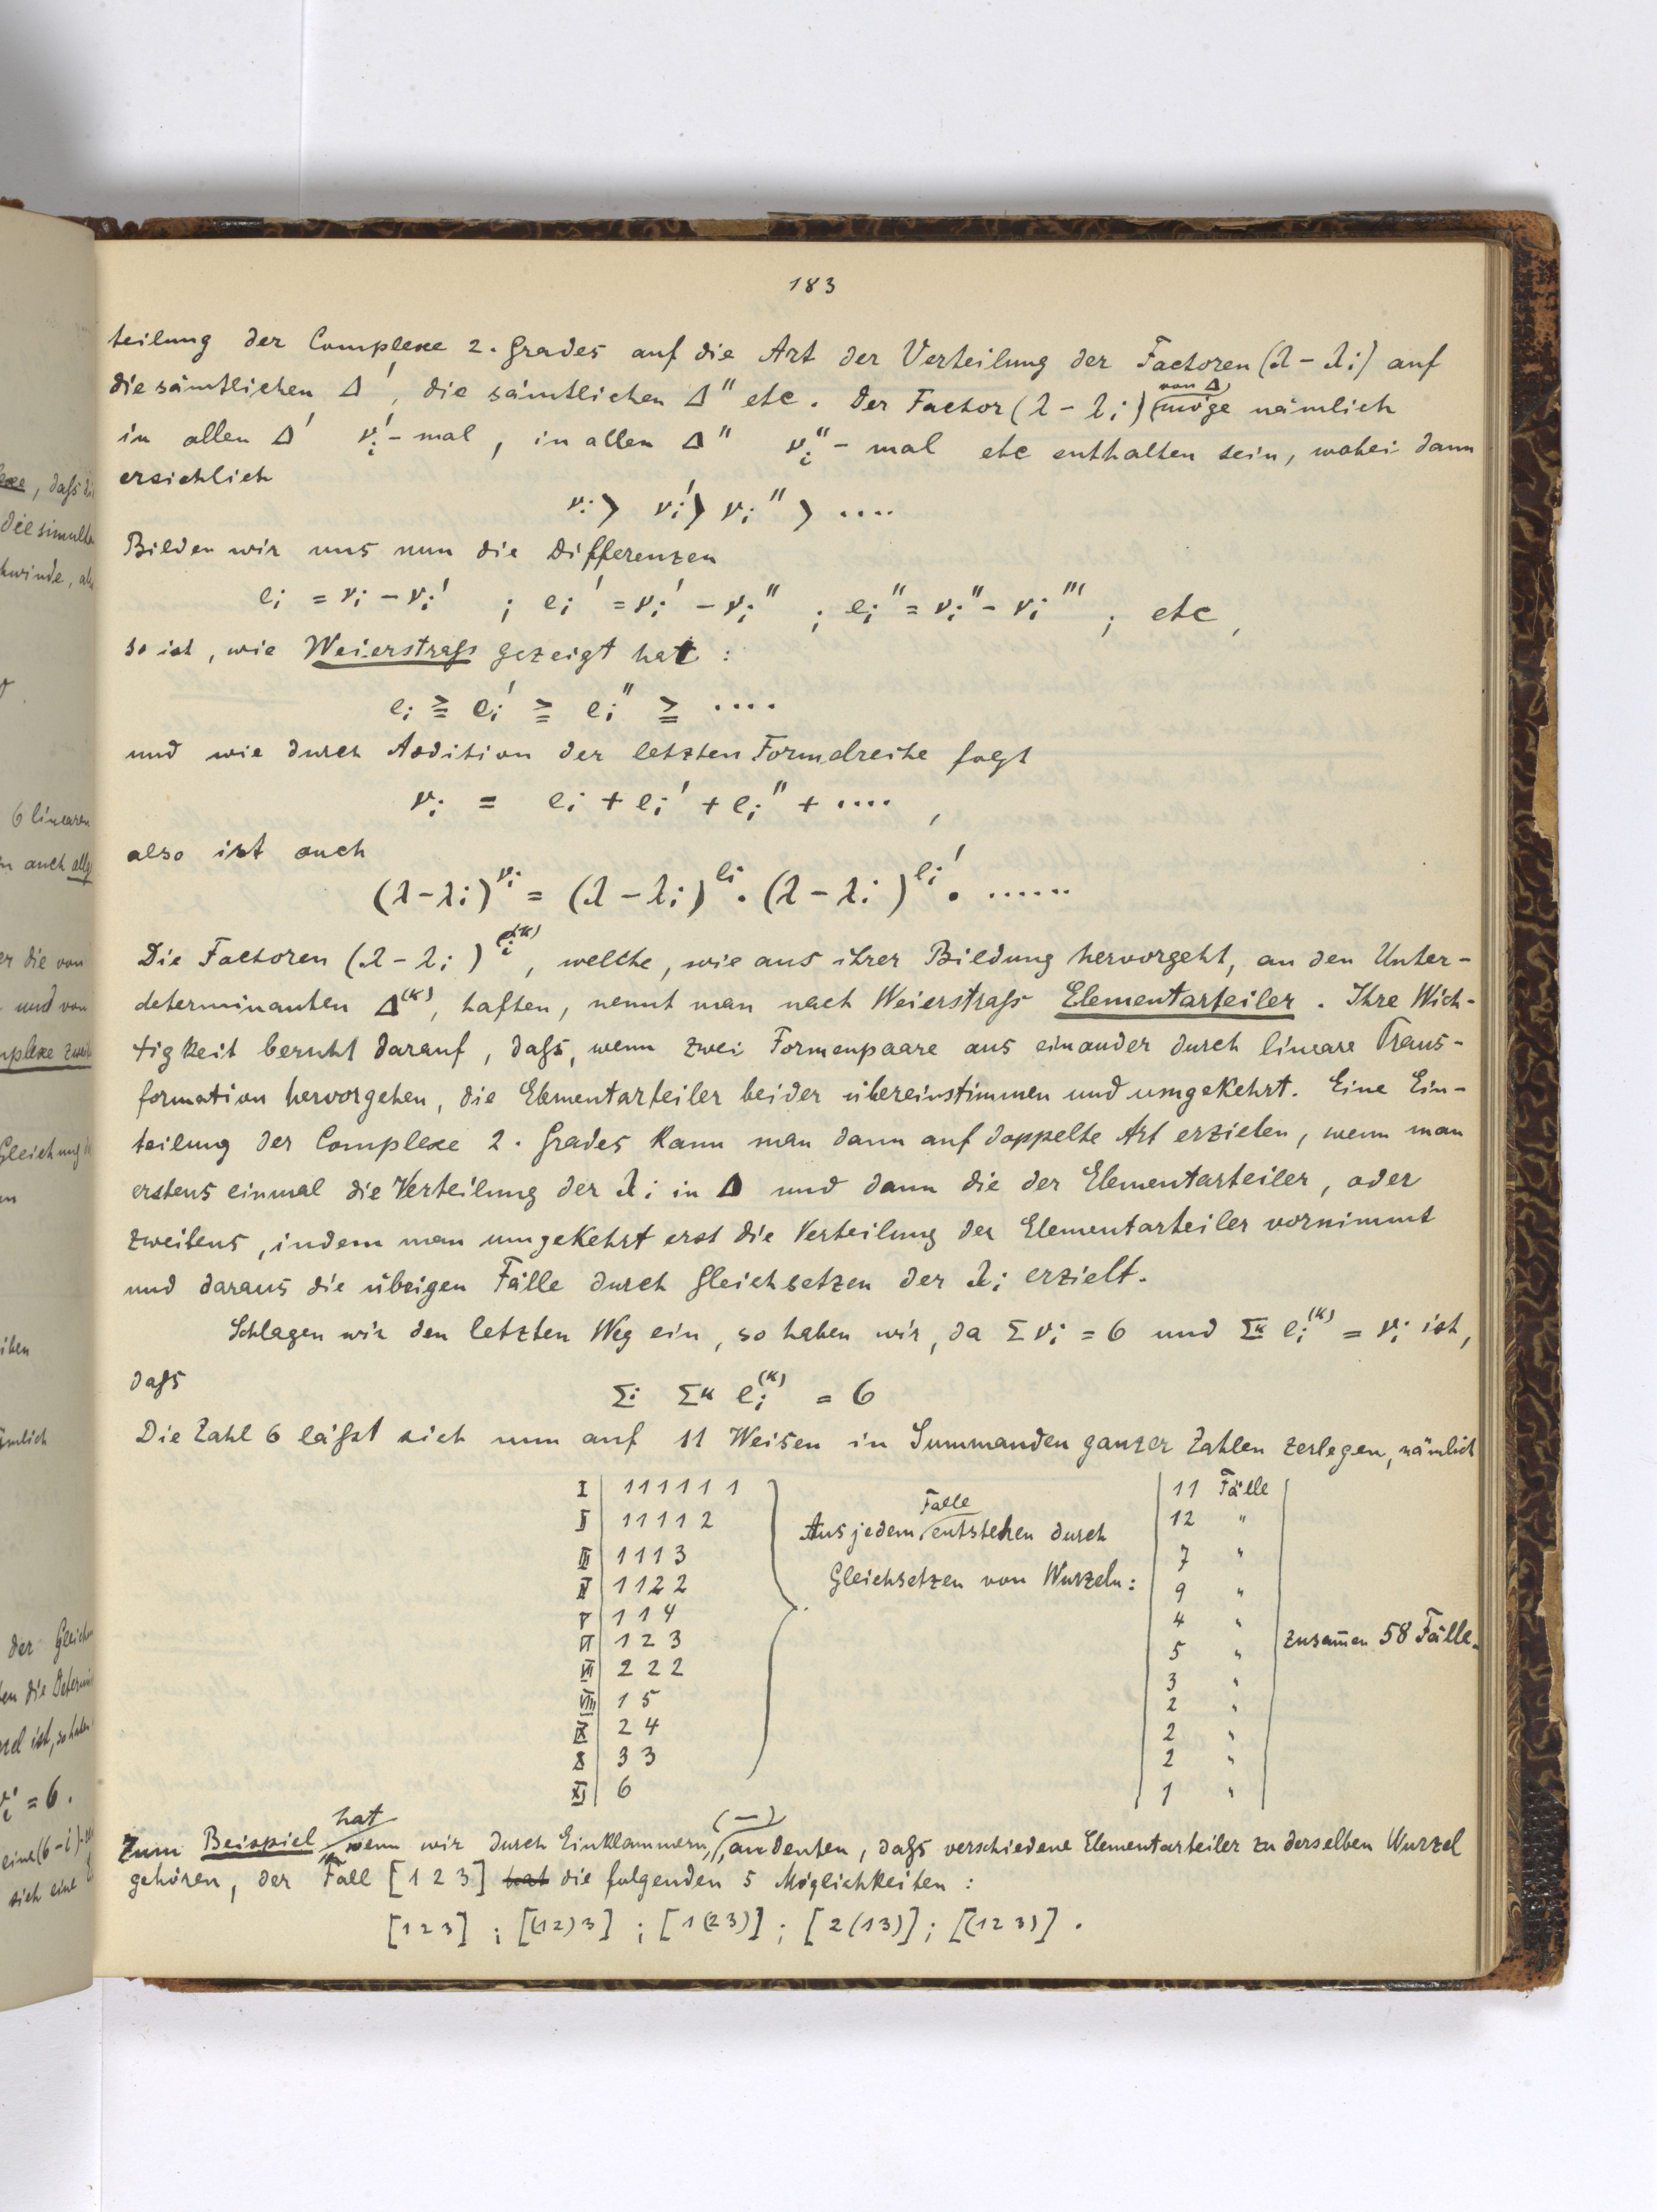 183
teilung der Complexe 2. Grades auf die Art der Verteilung der Factoren (λ - λi) auf
die sämtlichen Δ', die sämtlichen Δ'' etc. Der Factor (λ - λi) (von Δ) möge nämlich
in allen Δ' νi' - mal, in allen Δ'' νi'' - mal etc enthalten sein, wobei dann
ersichtlich
νi > νi' > νi'' > ....
Bilden wir uns nun die Differenzen
ei = νi - νi' ; ei' = νi' - νi'' ; ei'' = νi'' - νi''' ; etc,
so ist, wie Weierstraß gezeigt hat :
ei ≧ ei' ≧ ei'' ≧ ....
und wie durch Addition der letzten Formelreihe folgt
νi = ei + ei' + ei'' + ....,
also ist auch
(λ - λi)^νi = (λ - λi)^ei . (λ - λi)^ei' . ......
Die Factoren (λ - λi)^ei^(κ), welche, wie aus ihrer Bildung hervorgeht, an den Unter-
determinanten Δ^(κ), haften, nennt man nach Weierstraß Elementarteiler. Ihre Wich-
tigkeit beruht darauf, daß, wenn zwei Formenpaare aus einander durch lineare Trans-
formation hervorgehen, die Elementarteiler beider übereinstimmen und umgekehrt. Eine Ein-
teilung der Complexe 2. Grades kann man dann auf doppelte Art erzielen, wenn man
erstens einmal die Verteilung der λi in Δ und dann die der Elementarteiler, oder
zweitens, indem man umgekehrt erst die Verteilung der Elementarteiler vornimmt
und daraus die übrigen Fälle durch Gleichsetzen der λi erzielt.
Schlagen wir den letzten Weg ein, so haben wir, da Σ νi = 6 und Σκ ei^(κ) = νi ist,
daß
Σi Σκ ei^(κ) = 6
Die Zahl 6 läßt sich nun auf 11 Weisen in Summanden ganzer Zahlen zerlegen, nämlich
I | 1 1 1 1 1 1
II | 1 1 1 1 2
III | 1 1 1 3
IV | 1 1 2 2
V | 1 1 4
VI | 1 2 3
VII | 2 2 2
VIII | 1 5
IX | 2 4
X | 3 3
XI | 6
Aus jedem Falle entstehen durch
Gleichsetzen von Wurzeln:
11 Fälle
12 "
7 "
9 "
4 "
5 "
3 "
2 "
2 "
2 "
1 "
zusam̄en 58 Fälle.
Zum Beispiel hat, wenn wir durch Einklammern, (—) andeuten, daß verschiedene Elementarteiler zu derselben Wurzel
gehören, der Fall [1 2 3] hat die folgenden 5 Möglichkeiten :
[1 2 3] ; [(1 2) 3] ; [1 (2 3)] ; [2 (1 3)] ; [(1 2 3)] .